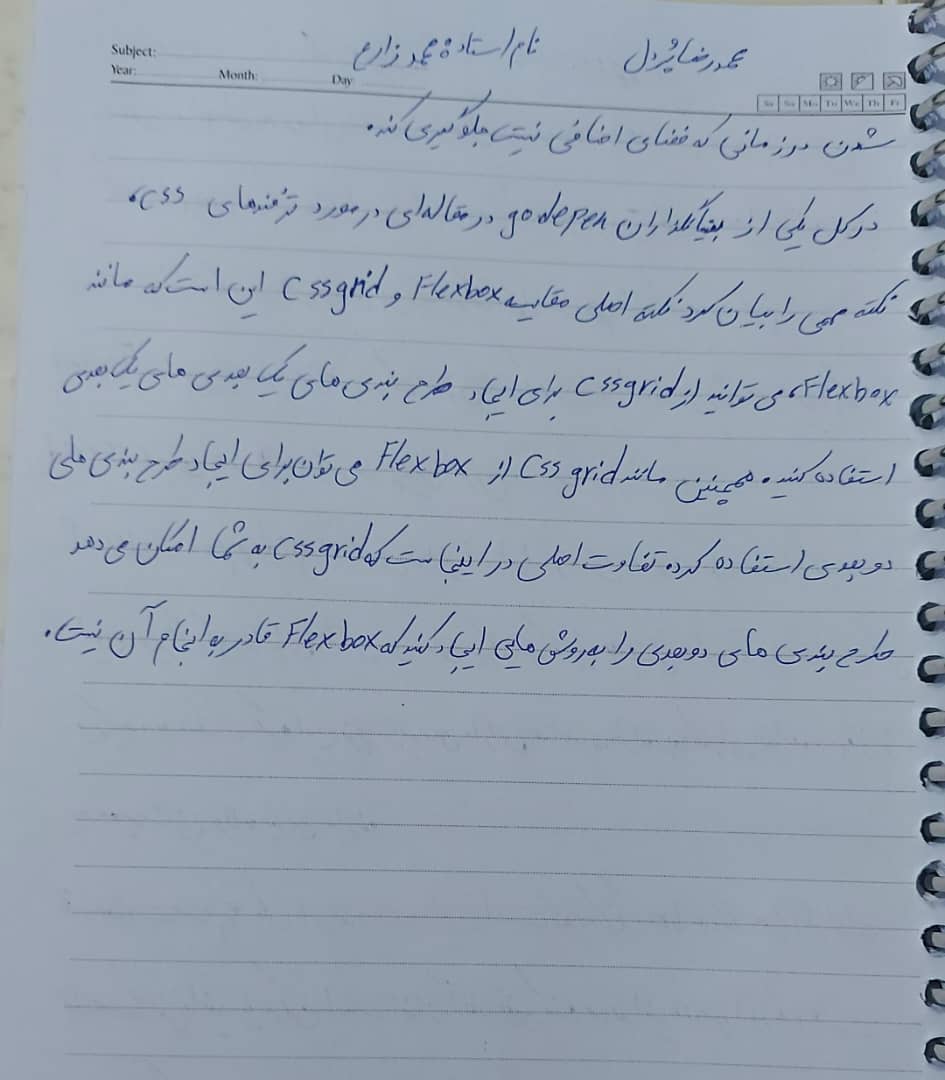 Subject:
Year: Month: Day
محمدرضا پردل نام استاد: محمد زارع
Sa Su Mo Tu We Th Fr
شدن در زمانی که فضای اضافی نیست جلوگیری کند.
در کل یکی از بنیانگذاران godepen در مقاله‌ای در مورد ترفندهای css،
نکته مهمی را بیان کرد نکته اصلی مقایسه Flexbox و Cssgrid این است که مانند
Flexbox، می توانید از Cssgrid برای ایجاد طرح بندی های یک بعدی های یک بعدی
استفاده کنید. همچنین مانند Css grid از Flexbox می توان برای ایجاد طرح بندی های
دو بعدی استفاده کرد. تفاوت اصلی در اینجاست که Cssgrid به شما امکان می دهد
طرح بندی های دو بعدی را به روش هایی ایجاد کنید که Flexbox قادر به انجام آن نیست.